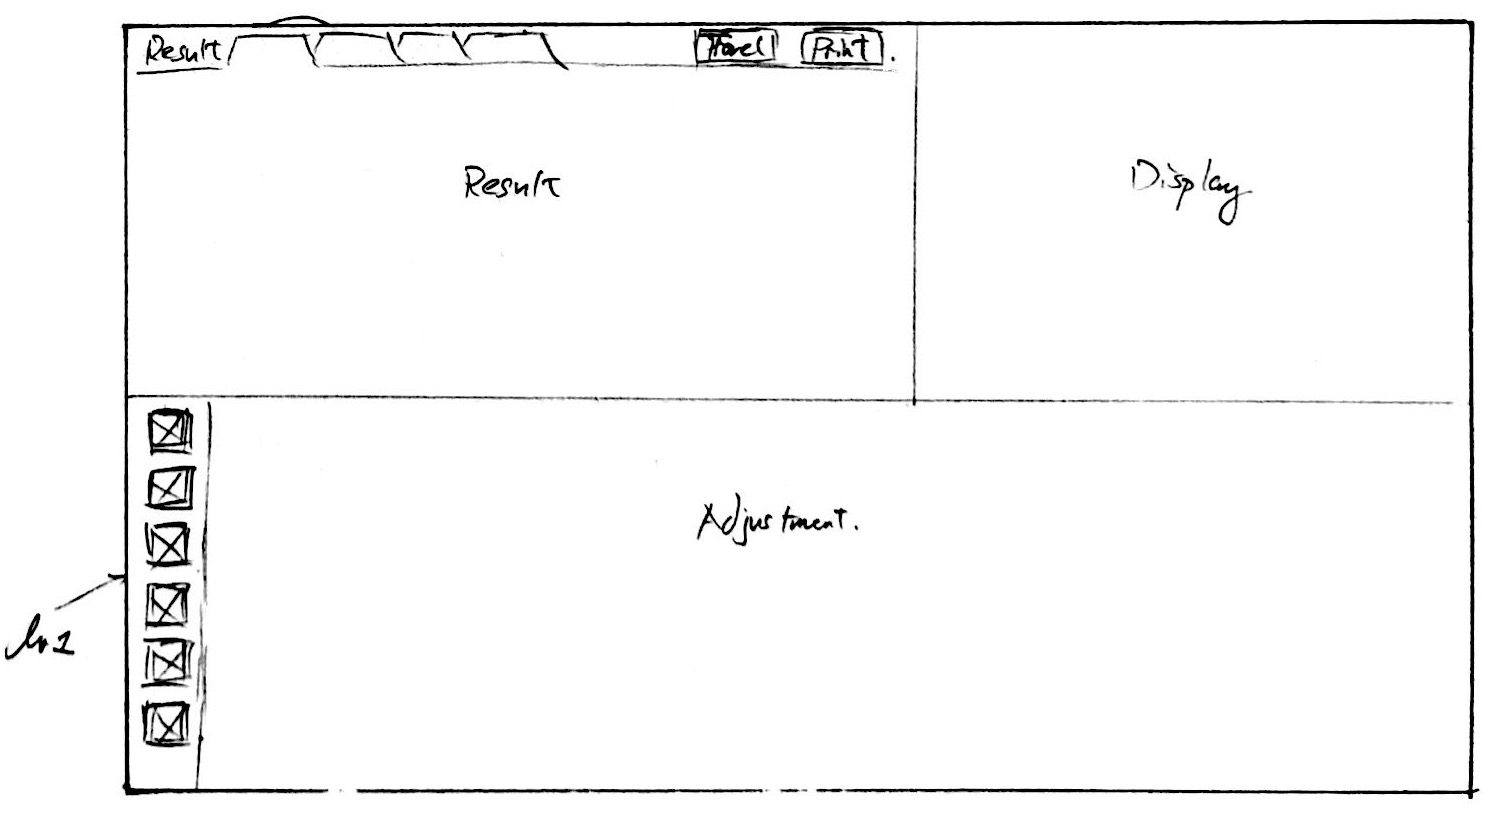 Result
Print.
Result
Display
Adjustment.